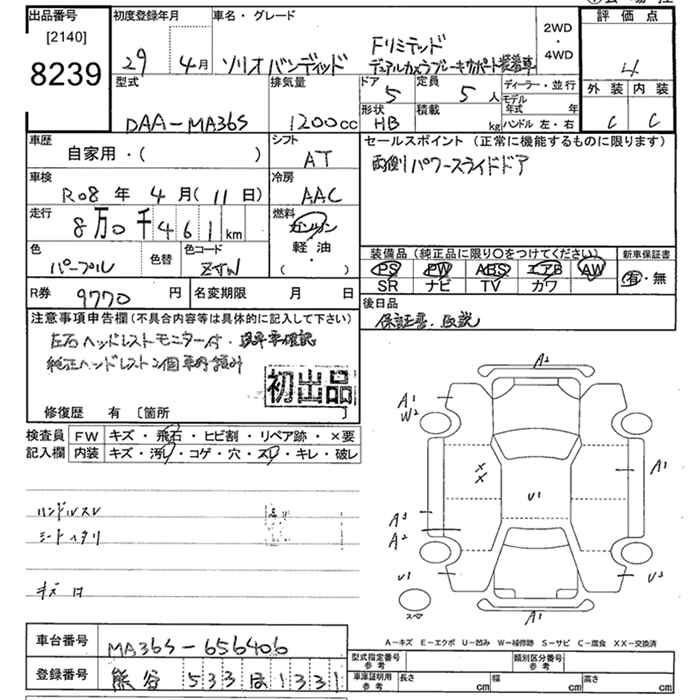 出品番号 初度登録年月 車名・グレード 評価点
[2140] 29 4月 ソリオバンディッド Fリミテッド 2WD・4WD 4
8239 デュアルカメラブレーキサポート装着車
型式 排気量 ドア 5 定員 5人 ディーラー・並行 外装 内装
DAA-MA36S 1200cc 形状 HB 積載 kg モデル年式 年 C C
ハンドル 左・右
車歴 自家用・( ) シフト AT セールスポイント (正常に機能するものに限ります)
両側パワースライドドア
車検 R08年 4月(11日) 冷房 AAC
走行 8万0千461km 燃料 ガソリン 軽油・( )
色 パープル 色替 色コード
装備品 (純正品に限り○をつけてください) 新車保証書
PS PW ABS エアB AW 有・無
SR ナビ TV カワ
R券 9770円 名変期限 月 日 後日品
保証書・取説
注意事項申告欄 (不具合内容等は具体的に記入して下さい)
左右ヘッドレストモニター付・現車確認
純正ヘッドレスト2個車内積み
初出品
修復歴 有 〔箇所 〕
検査員 FW キズ・飛石・ヒビ割・リペア跡・×要
記入欄 内装 キズ・汚レ・コゲ・穴・スレ・キレ・破レ
ハンドルスレ
キズ
A2
A1
W2
A1
XX
U1
A3
A2
U1
U3
スペア
A1
A-キズ E-エクボ U-凹み W-補修跡 S-サビ C-腐食 XX-交換済
車台番号 MA36S-656406
登録番号 熊谷 533 は 1331
型式指定番号 参考 類別区分番号 参考
車庫証明用 参考 長さ cm 幅 cm 高さ cm